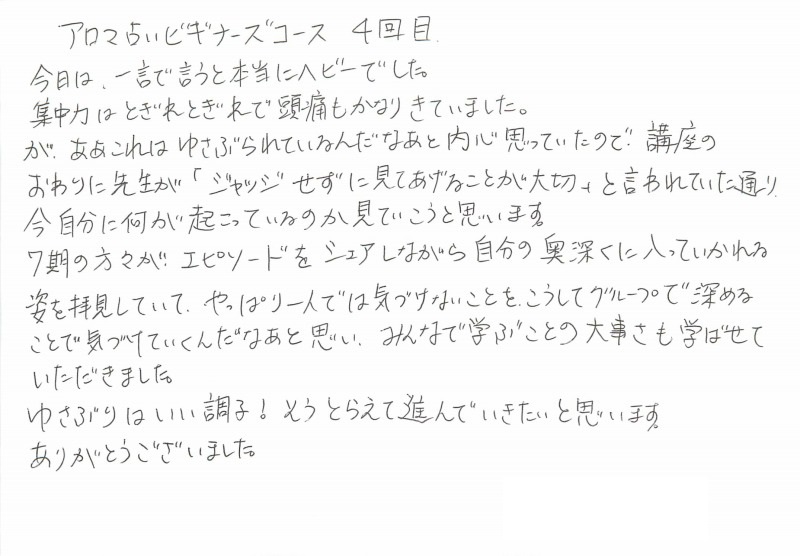 アロマ占いビギナーズコース 4回目.
今日は、一言で言うと本当にヘビーでした。
集中力はとぎれとぎれで頭痛もかなりきていました。
が、ああこれはゆさぶられているんだなあと内心思っていたので、講座の
おわりに先生が「ジャッジせずに見てあげることが大切」と言われていた通り、
今自分に何が起こっているのか見ていこうと思います。
7期の方々が、エピソードをシェアしながら自分の奥深くに入っていかれる
姿を拝見していて、やっぱり一人では気づけないことを、こうしてグループで深める
ことで気づけていくんだなあと思い、みんなで学ぶことの大事さも学ばせて
いただきました。
ゆさぶりはいい調子！そうとらえて進んでいきたいと思います。
ありがとうございました。